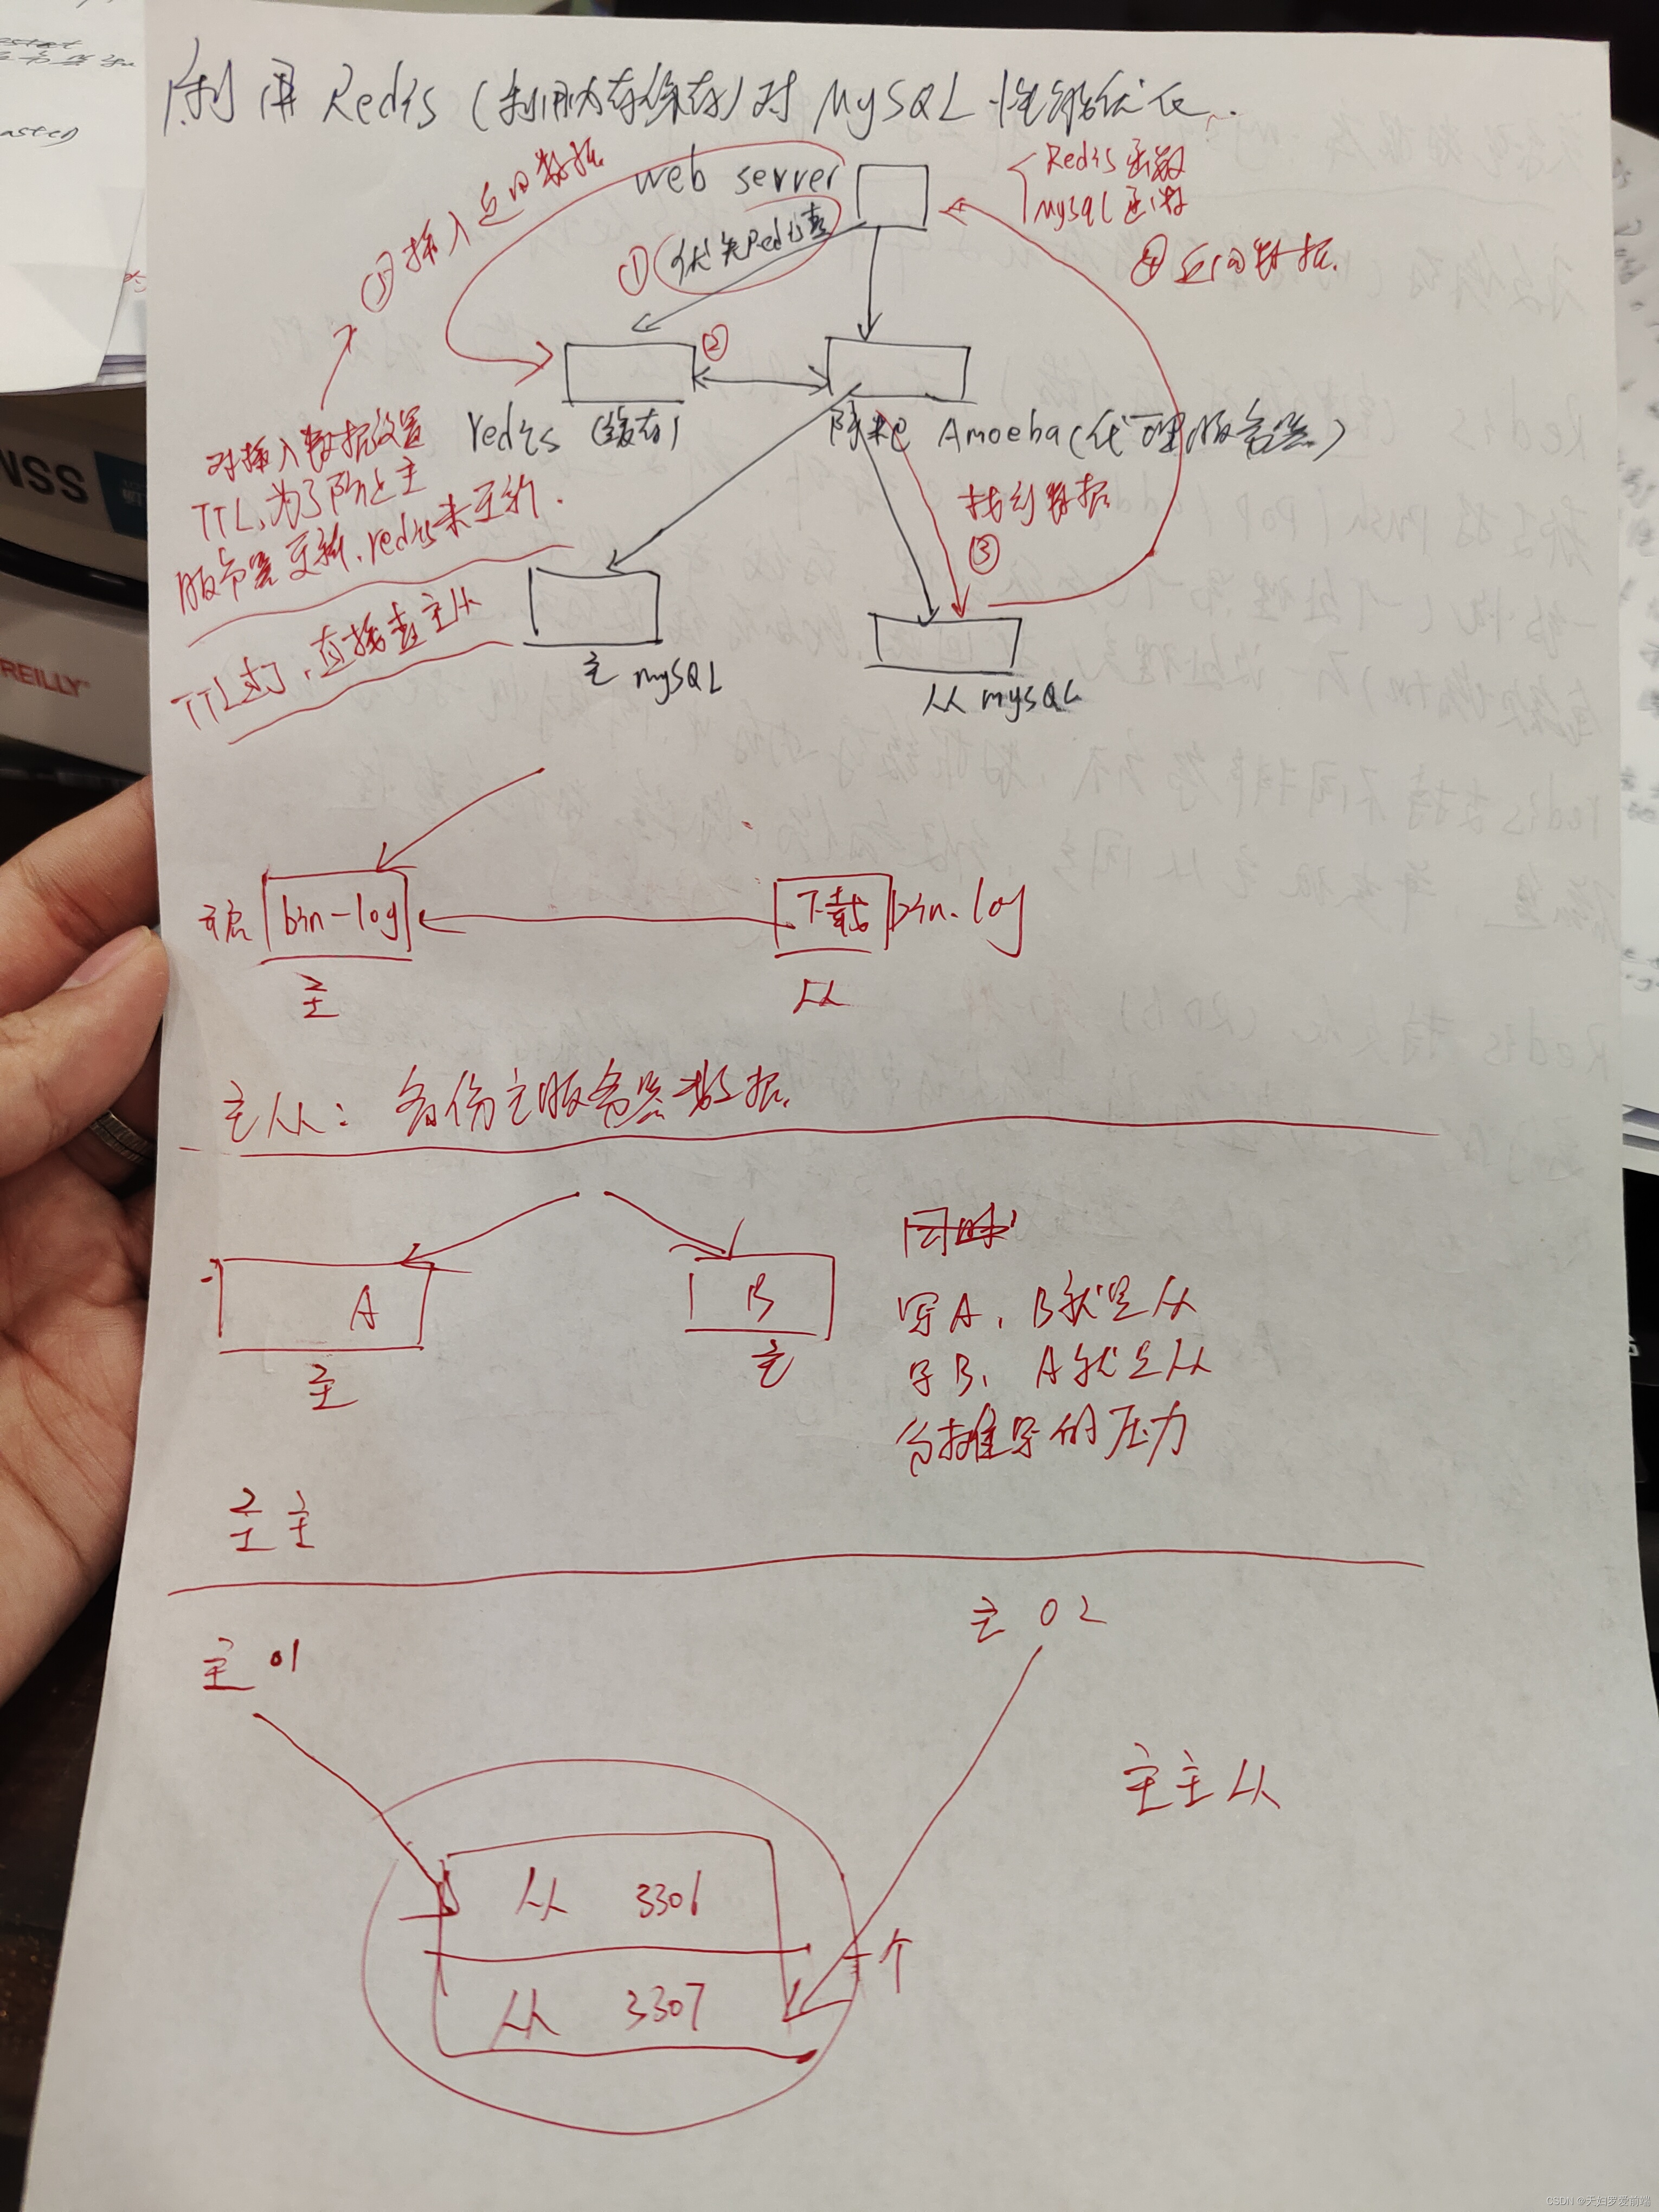 利用 Redis (利用内存缓存) 对 MySQL 性能优化.
web server
Redis 函数
Mysql 函数
① 优先Redis查
④ 返回数据.
⑤ 插入返回数据
②
redis (缓存)
阿米巴 Amoeba (代理服务器)
对插入数据设置
TTL,为了防止主
服务器更新,redis未更新.
找到数据
③
TTL过了,直接查主从
主 mySQL
从 mySQL
bin-log
下载 bin.log
主
从
主从: 备份主服务器数据.
A
B
主
主
同时
写A, B就是从
写B, A就是从
分摊写的压力
主主
主 01
主 02
主主从
从 3306
从 3307
一个
NSS
REILLY
CSDN @天妇罗爱前端